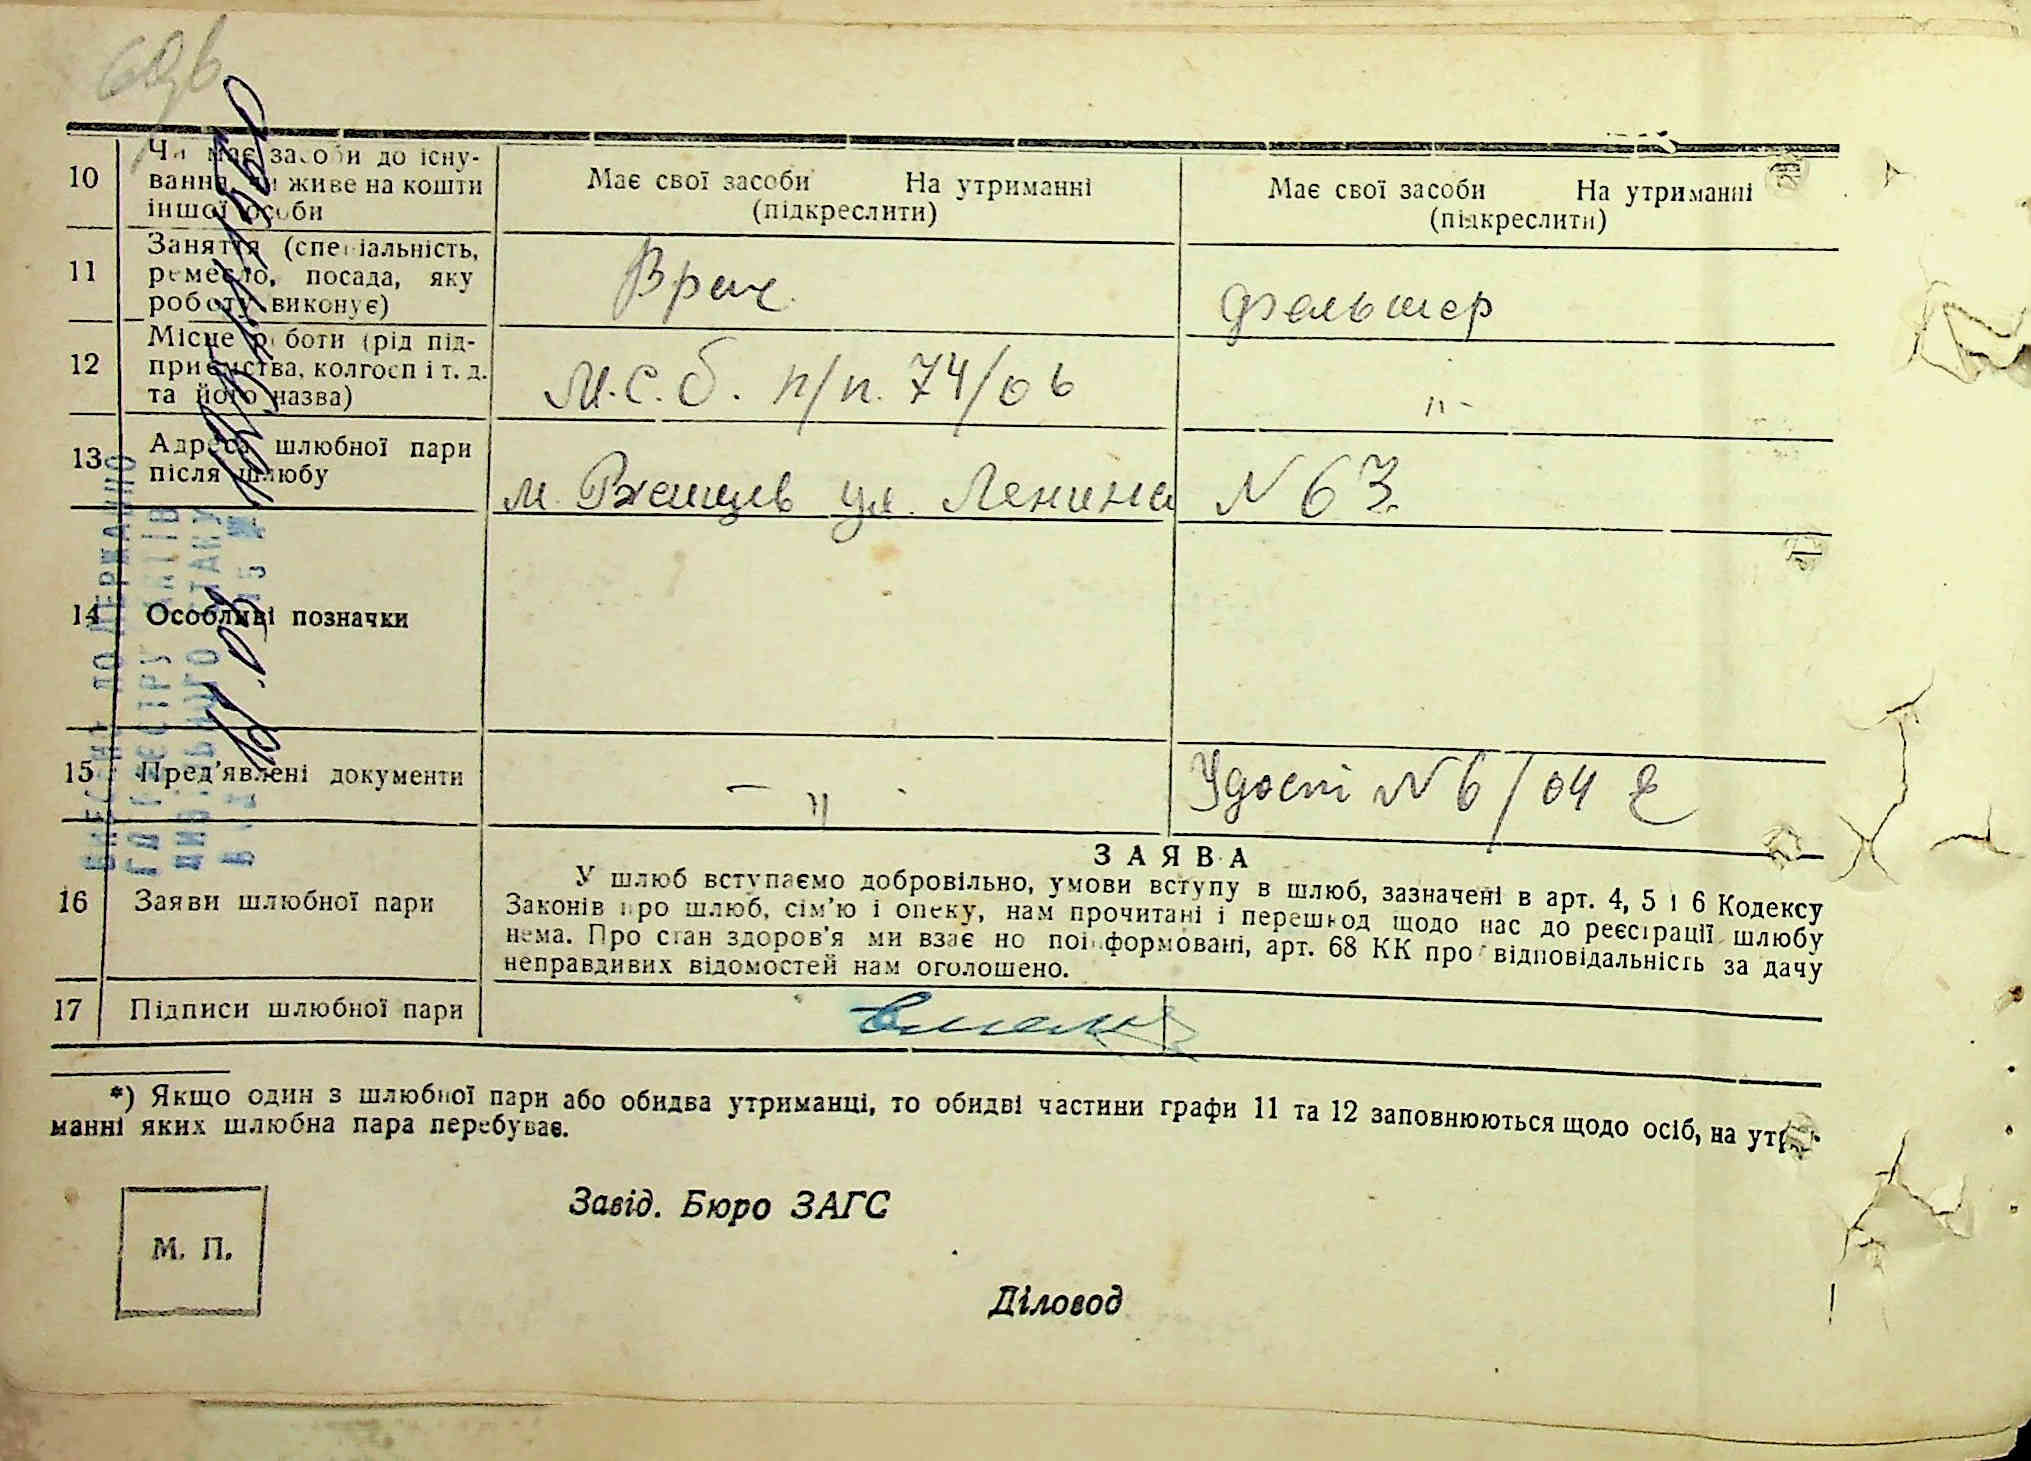 10
Чи має засоби до існу-
вання, чи живе на кошти
іншої особи
Має свої засоби На утриманні
(підкреслити)
Має свої засоби На утриманні
(підкреслити)
11
Заняття (спеціальність,
ремесло, посада, яку
роботу виконує)
Врач
фельшер
12
Місце роботи (рід під-
приємства, колгосп і т. д.
та його назва)
М.С.б. п/п. 74/06
-"-
13
Адреса шлюбної пари
після шлюбу
м. Ржищев ул. Ленина N 63
14
Особливі позначки
15
Пред'явлені документи
-"-
Удост N 6/04
16
Заяви шлюбної пари
ЗАЯВА
У шлюб вступаємо добровільно, умови вступу в шлюб, зазначені в арт. 4, 5 і 6 Кодексу
Законів про шлюб, сім'ю і опеку, нам прочитані і перешкод щодо нас до реєстрації шлюбу
нема. Про стан здоров'я ми взаємно поінформовані, арт. 68 КК про відповідальність за дачу
неправдивих відомостей нам оголошено.
17
Підписи шлюбної пари
*) Якщо один з шлюбної пари або обидва утриманці, то обидві частини графи 11 та 12 заповнюються щодо осіб, на утри-
манні яких шлюбна пара перебуває.
Завід. Бюро ЗАГС
М. П.
Діловод